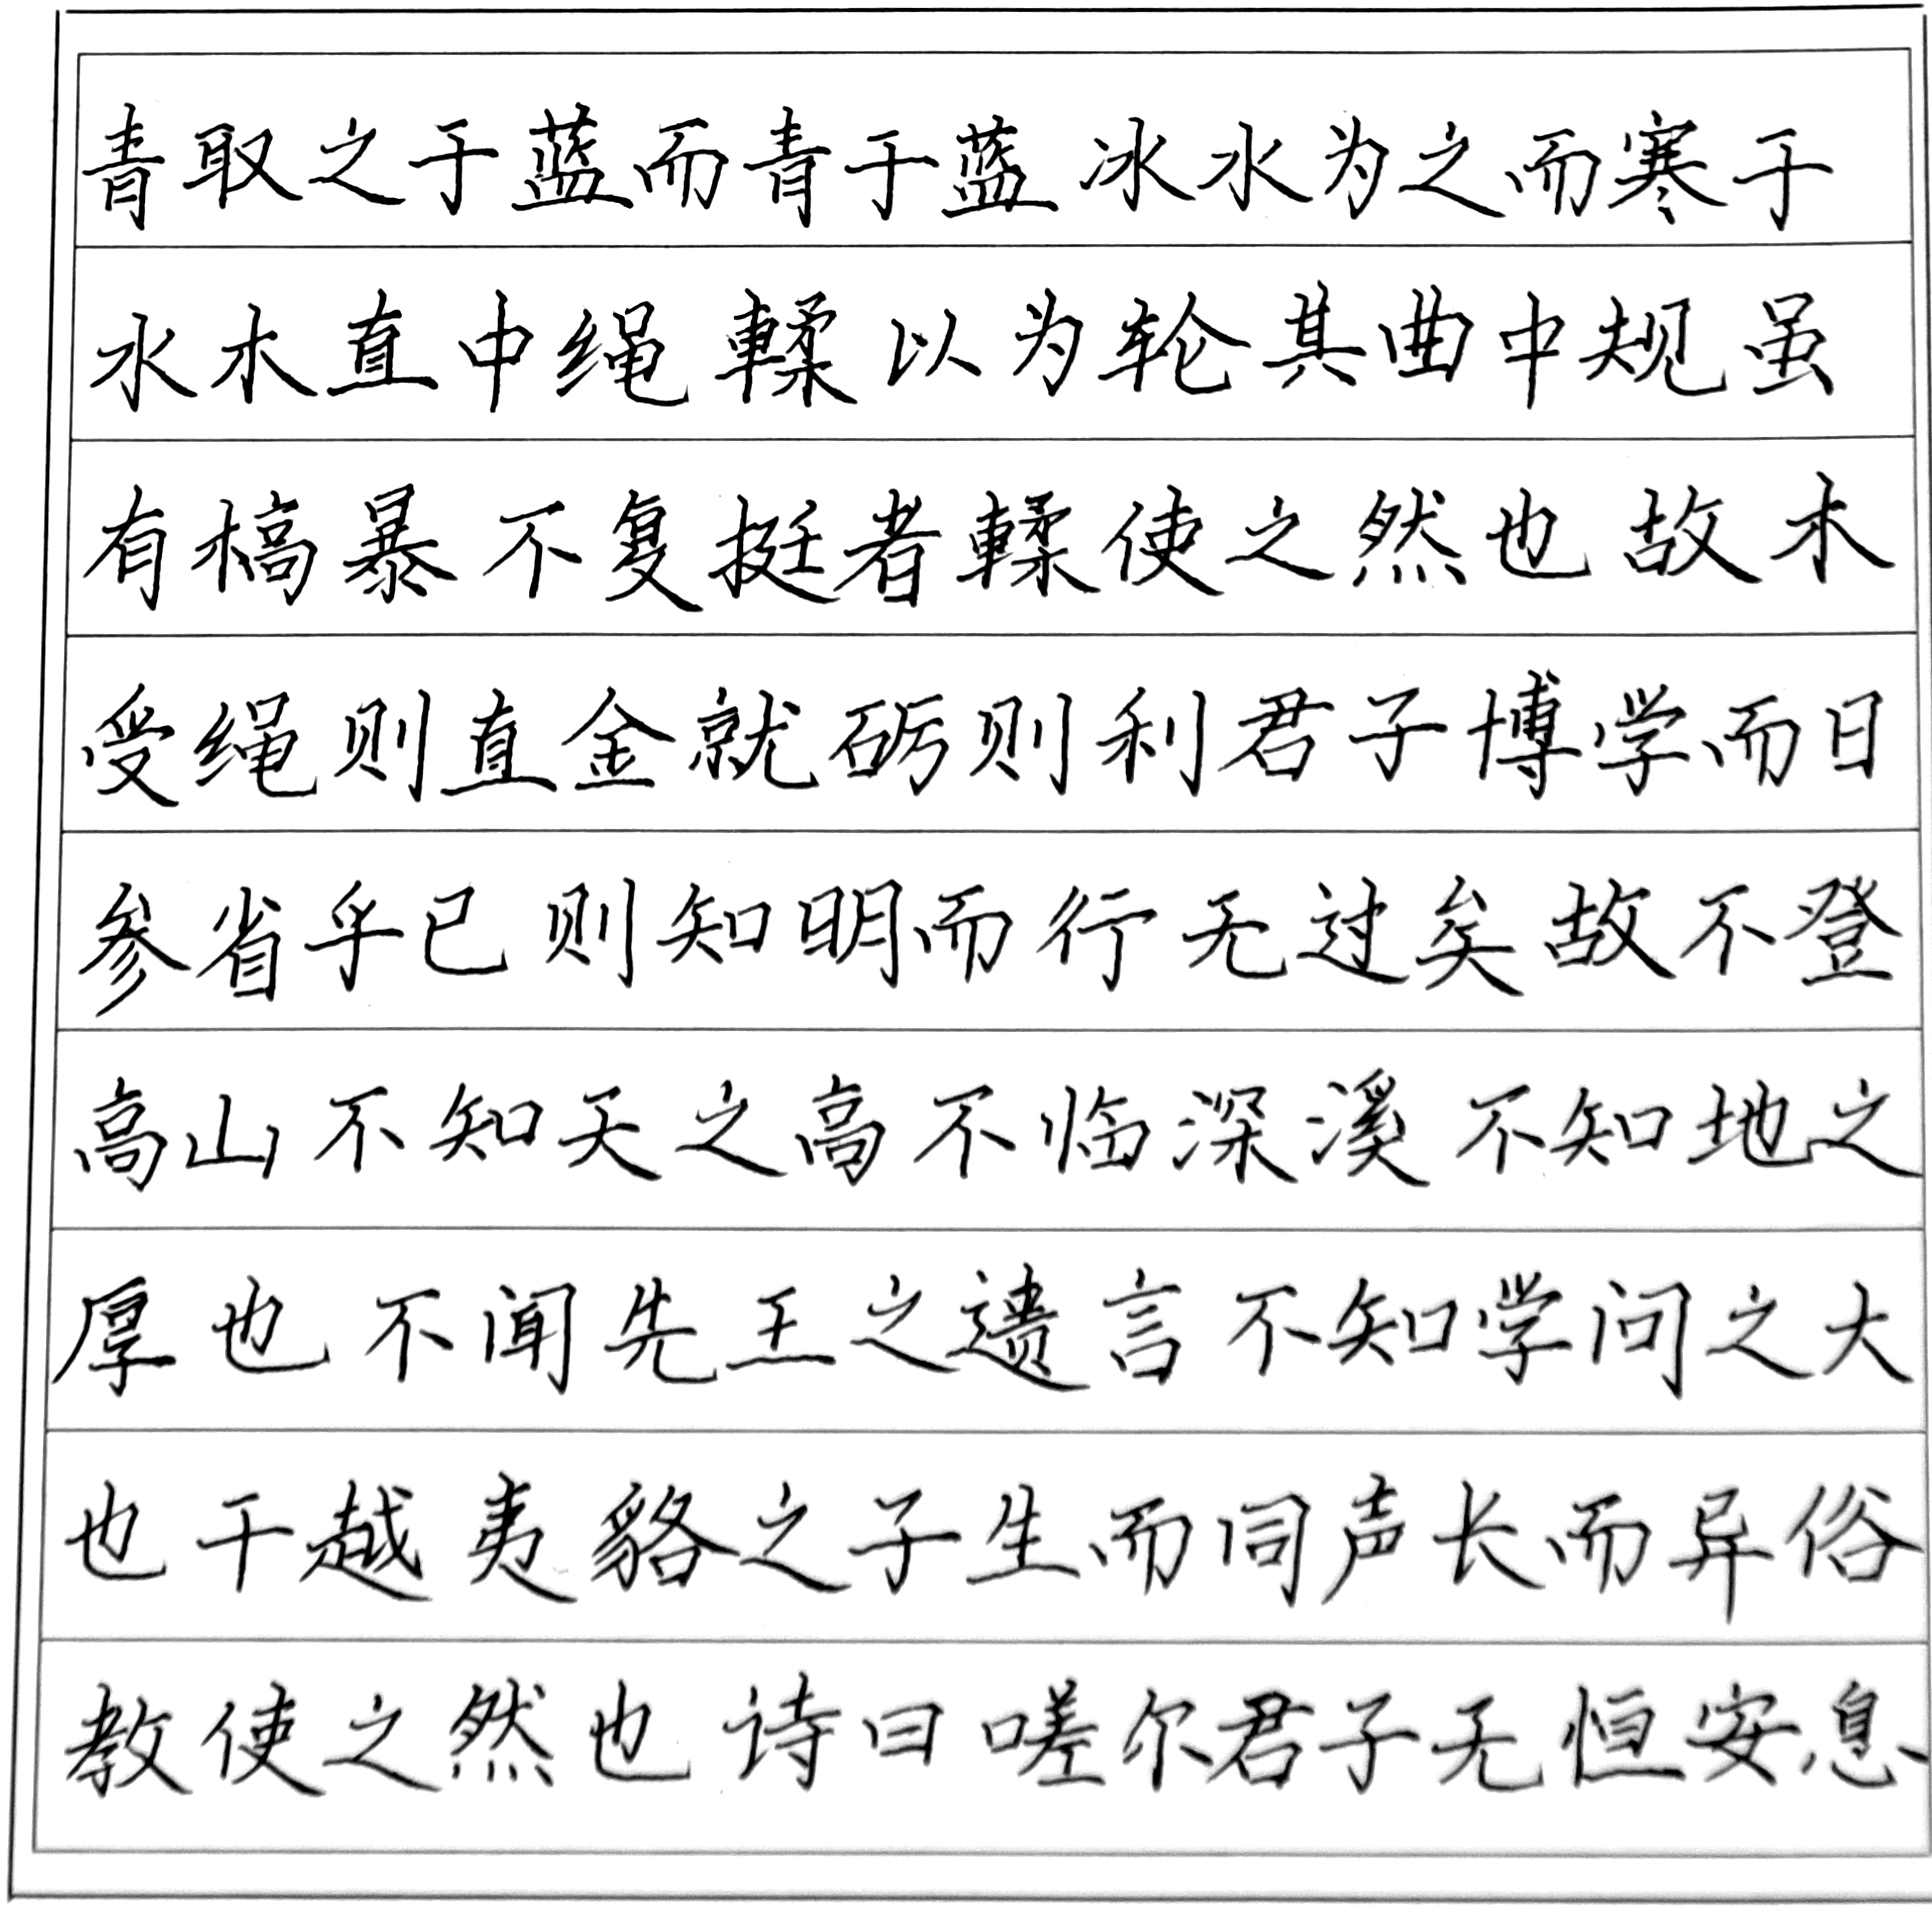 青取之于蓝而青于蓝冰水为之而寒于
水木直中绳輮以为轮其曲中规虽
有槁暴不复挺者輮使之然也故木
受绳则直金就砺则利君子博学而日
参省乎已则知明而行无过矣故不登
高山不知天之高不临深溪不知地之
厚也不闻先王之遗言不知学问之大
也干越夷貉之子生而同声长而异俗
教使之然也诗曰嗟尔君子无恒安息